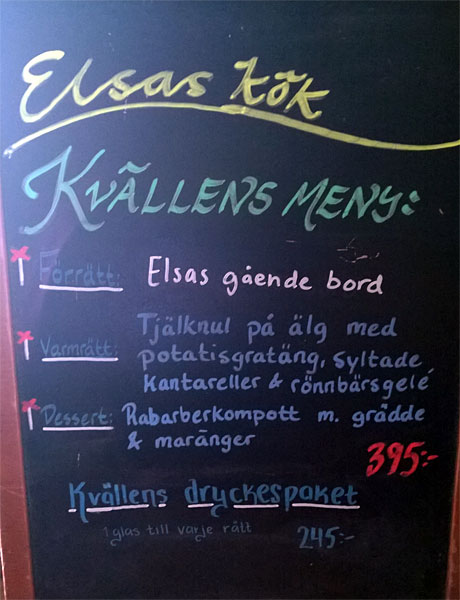 Elsas kök
KVÄLLENS MENY:
Förrätt: Elsas gående bord
Varmrätt: Tjälknul på älg med
potatisgratäng, syltade
kantareller & rönnbärsgelé
Dessert: Rabarberkompott m. grädde
& maränger
395:-
Kvällens dryckespaket
1 glas till varje rätt 245:-